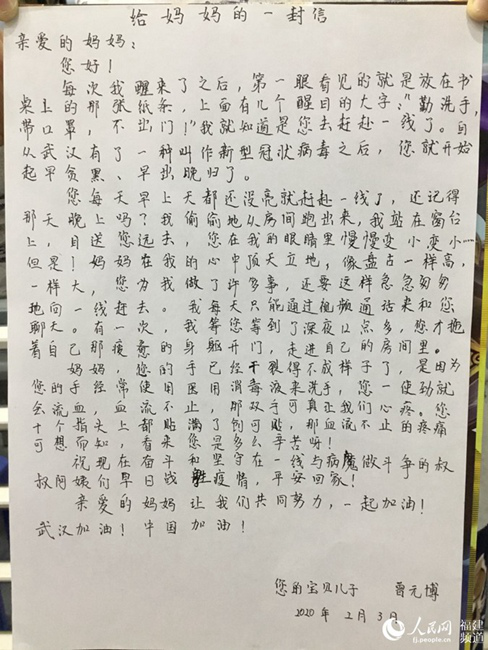 给妈妈的一封信
亲爱的妈妈：
您好！
每次我醒来了之后，第一眼看见的就是放在书
桌上的那张纸条，上面有几个醒目的大字："勤洗手，
带口罩，不出门！"我就知道是您去赶赴一线了。自
从武汉有了一种叫作新型冠状病毒之后，您就开始
起早贪黑、早出晚归了。
您每天早上天都还没亮就赶赴一线了，还记得
那天晚上吗？我偷偷地从房间跑出来，我站在窗台
上，目送您远去，您在我的眼睛里慢慢变小变小…
但是！妈妈在我的心中顶天立地，像盘古一样高，
一样大，您为我做了许多事，还要这样急急匆匆
地向一线赶去。我每天只能通过视频通话来和您
聊天。有一次，我等您等到了深夜12点多，您才拖
着自己那疲惫的身躯开门，走进自己的房间里。
妈妈，您的手已经干裂得不成样子了，是因为
您的手经常使用医用消毒液来洗手，您一使劲就
会流血，血流不止，那双手可真让我们心疼。您
十个指头上都贴满了创可贴，那血流不止的疼痛
可想而知，看来您是多么辛苦呀！
祝现在奋斗和坚守在一线与病魔做斗争的叔
叔阿姨们早日战胜疫情，平安回家！
亲爱的妈妈让我们共同努力，一起加油！
武汉加油！中国加油！
您的宝贝儿子 曾元博
2020年2月3日
人民网 福建频道
fj.people.cn